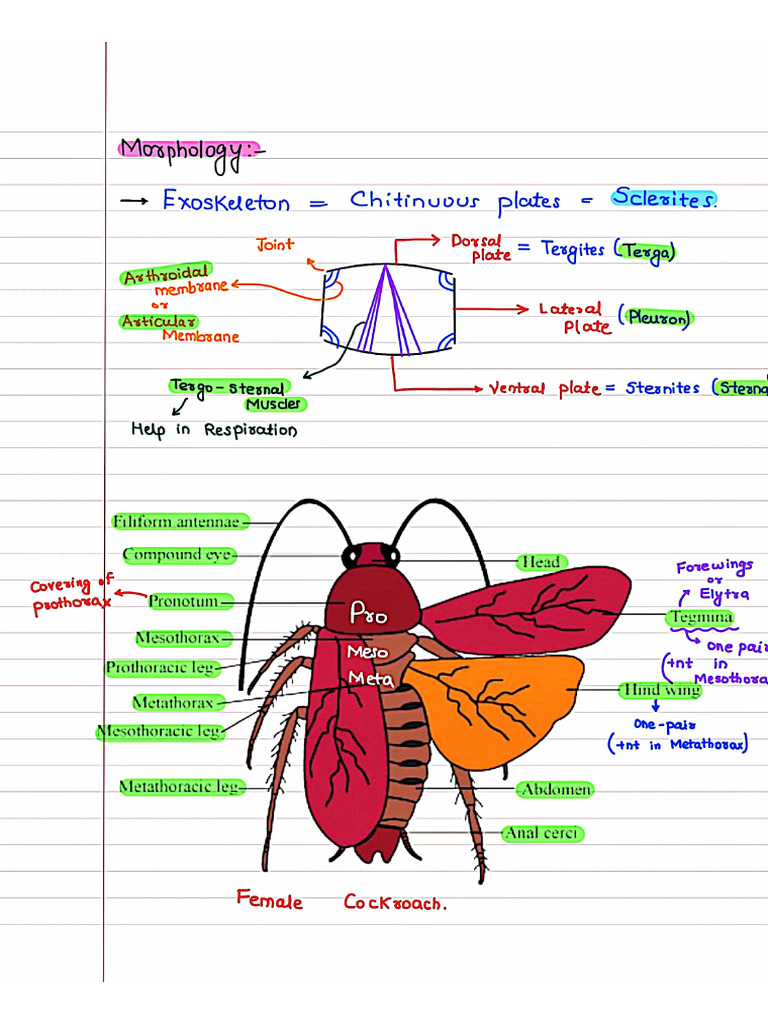 Morphology:-
→ Exoskeleton = Chitinuous plates = Sclerites.
Joint
Dorsal plate = Tergites (Terga)
Arthroidal membrane
or
Articular Membrane
Lateral Plate (Pleuron)
Ventral plate = Sternites (Sterna
Tergo-Sternal
Muscles
Help in Respiration
Filiform antennae
Compound eye
Head
Forewings
or
Elytra
Covering of
prothorax
Pronotum
Pro
Tegmina
Mesothorax
Meso
one pair
(+nt in
Mesothora
Prothoracic leg
Meta
Hind wing
Metathorax
one-pair
(+nt in Metathorax)
Mesothoracic leg
Metathoracic leg
Abdomen
Anal cerci
Female Cockroach.